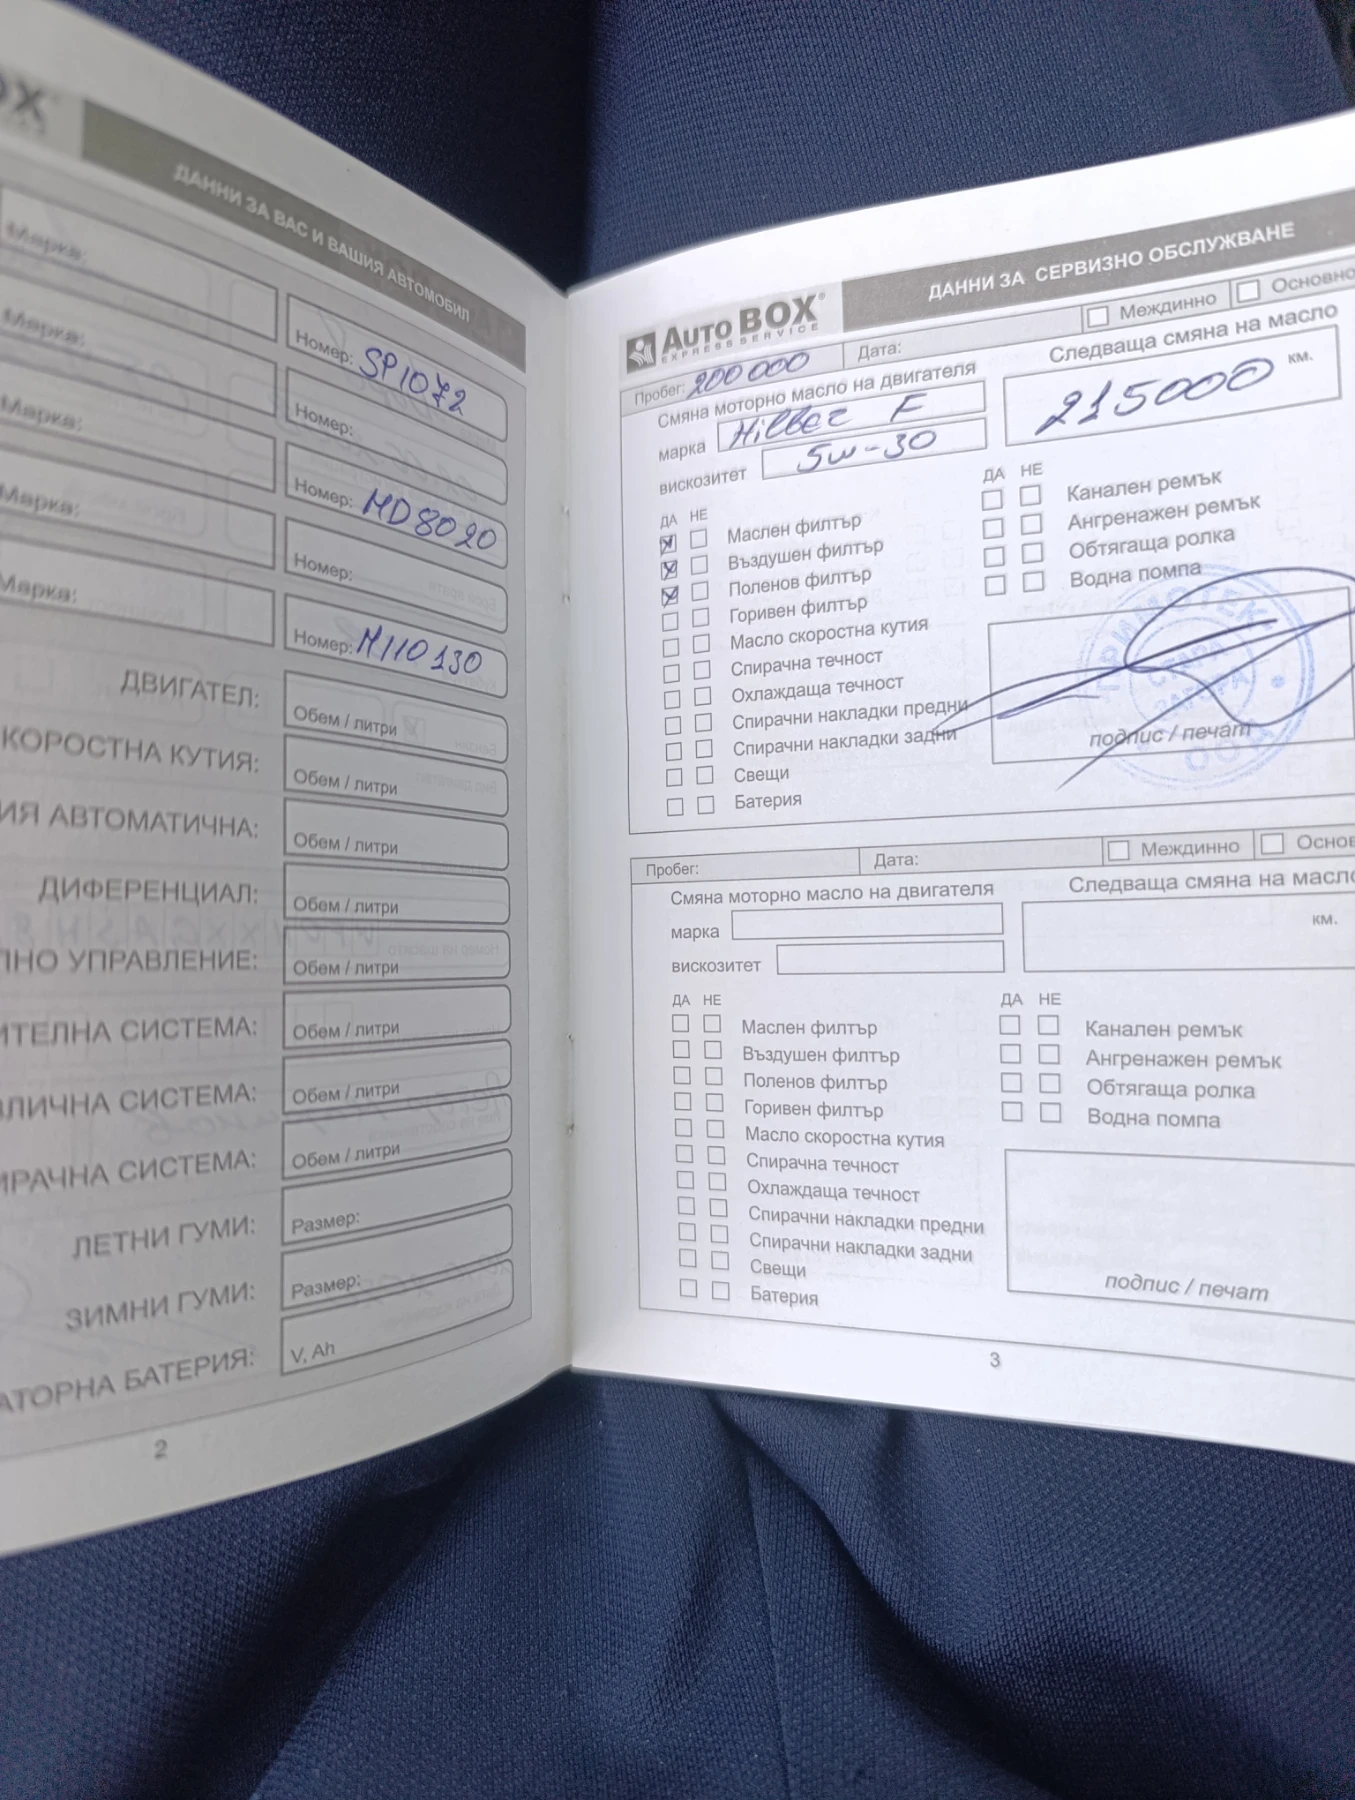 ДАННИ ЗА ВАС И ВАШИЯ АВТОМОБИЛ
Марка:
Номер: SP1072
Марка:
Номер:
Марка:
Номер: MD8020
Марка:
Номер:
Марка:
Номер: M110130
ДВИГАТЕЛ: Обем / литри
КОРОСТНА КУТИЯ: Обем / литри
ИЯ АВТОМАТИЧНА: Обем / литри
ДИФЕРЕНЦИАЛ: Обем / литри
ЛНО УПРАВЛЕНИЕ: Обем / литри
ИТЕЛНА СИСТЕМА: Обем / литри
ВЛИЧНА СИСТЕМА: Обем / литри
ИРАЧНА СИСТЕМА: Обем / литри
ЛЕТНИ ГУМИ: Размер:
ЗИМНИ ГУМИ: Размер:
АТОРНА БАТЕРИЯ: V, Ah
2
AUTO BOX
EXPRESS SERVICE
ДАННИ ЗА СЕРВИЗНО ОБСЛУЖВАНЕ
Пробег: 200000
Дата:
Междинно
Основно
Смяна моторно масло на двигателя
Следваща смяна на масло
марка
215000 км.
вискозитет 5w-30
ДА НЕ
Маслен филтър
Въздушен филтър
Поленов филтър
Горивен филтър
Масло скоростна кутия
Спирачна течност
Охлаждаща течност
Спирачни накладки предни
Спирачни накладки задни
Свещи
Батерия
ДА НЕ
Канален ремък
Ангренажен ремък
Обтягаща ролка
Водна помпа
СТАРА
ЗАГОРА
ООД
подпис / печат
Пробег:
Дата:
Междинно
Основ
Смяна моторно масло на двигателя
Следваща смяна на масло
марка
км.
вискозитет
ДА НЕ
Маслен филтър
Въздушен филтър
Поленов филтър
Горивен филтър
Масло скоростна кутия
Спирачна течност
Охлаждаща течност
Спирачни накладки предни
Спирачни накладки задни
Свещи
Батерия
ДА НЕ
Канален ремък
Ангренажен ремък
Обтягаща ролка
Водна помпа
подпис / печат
3